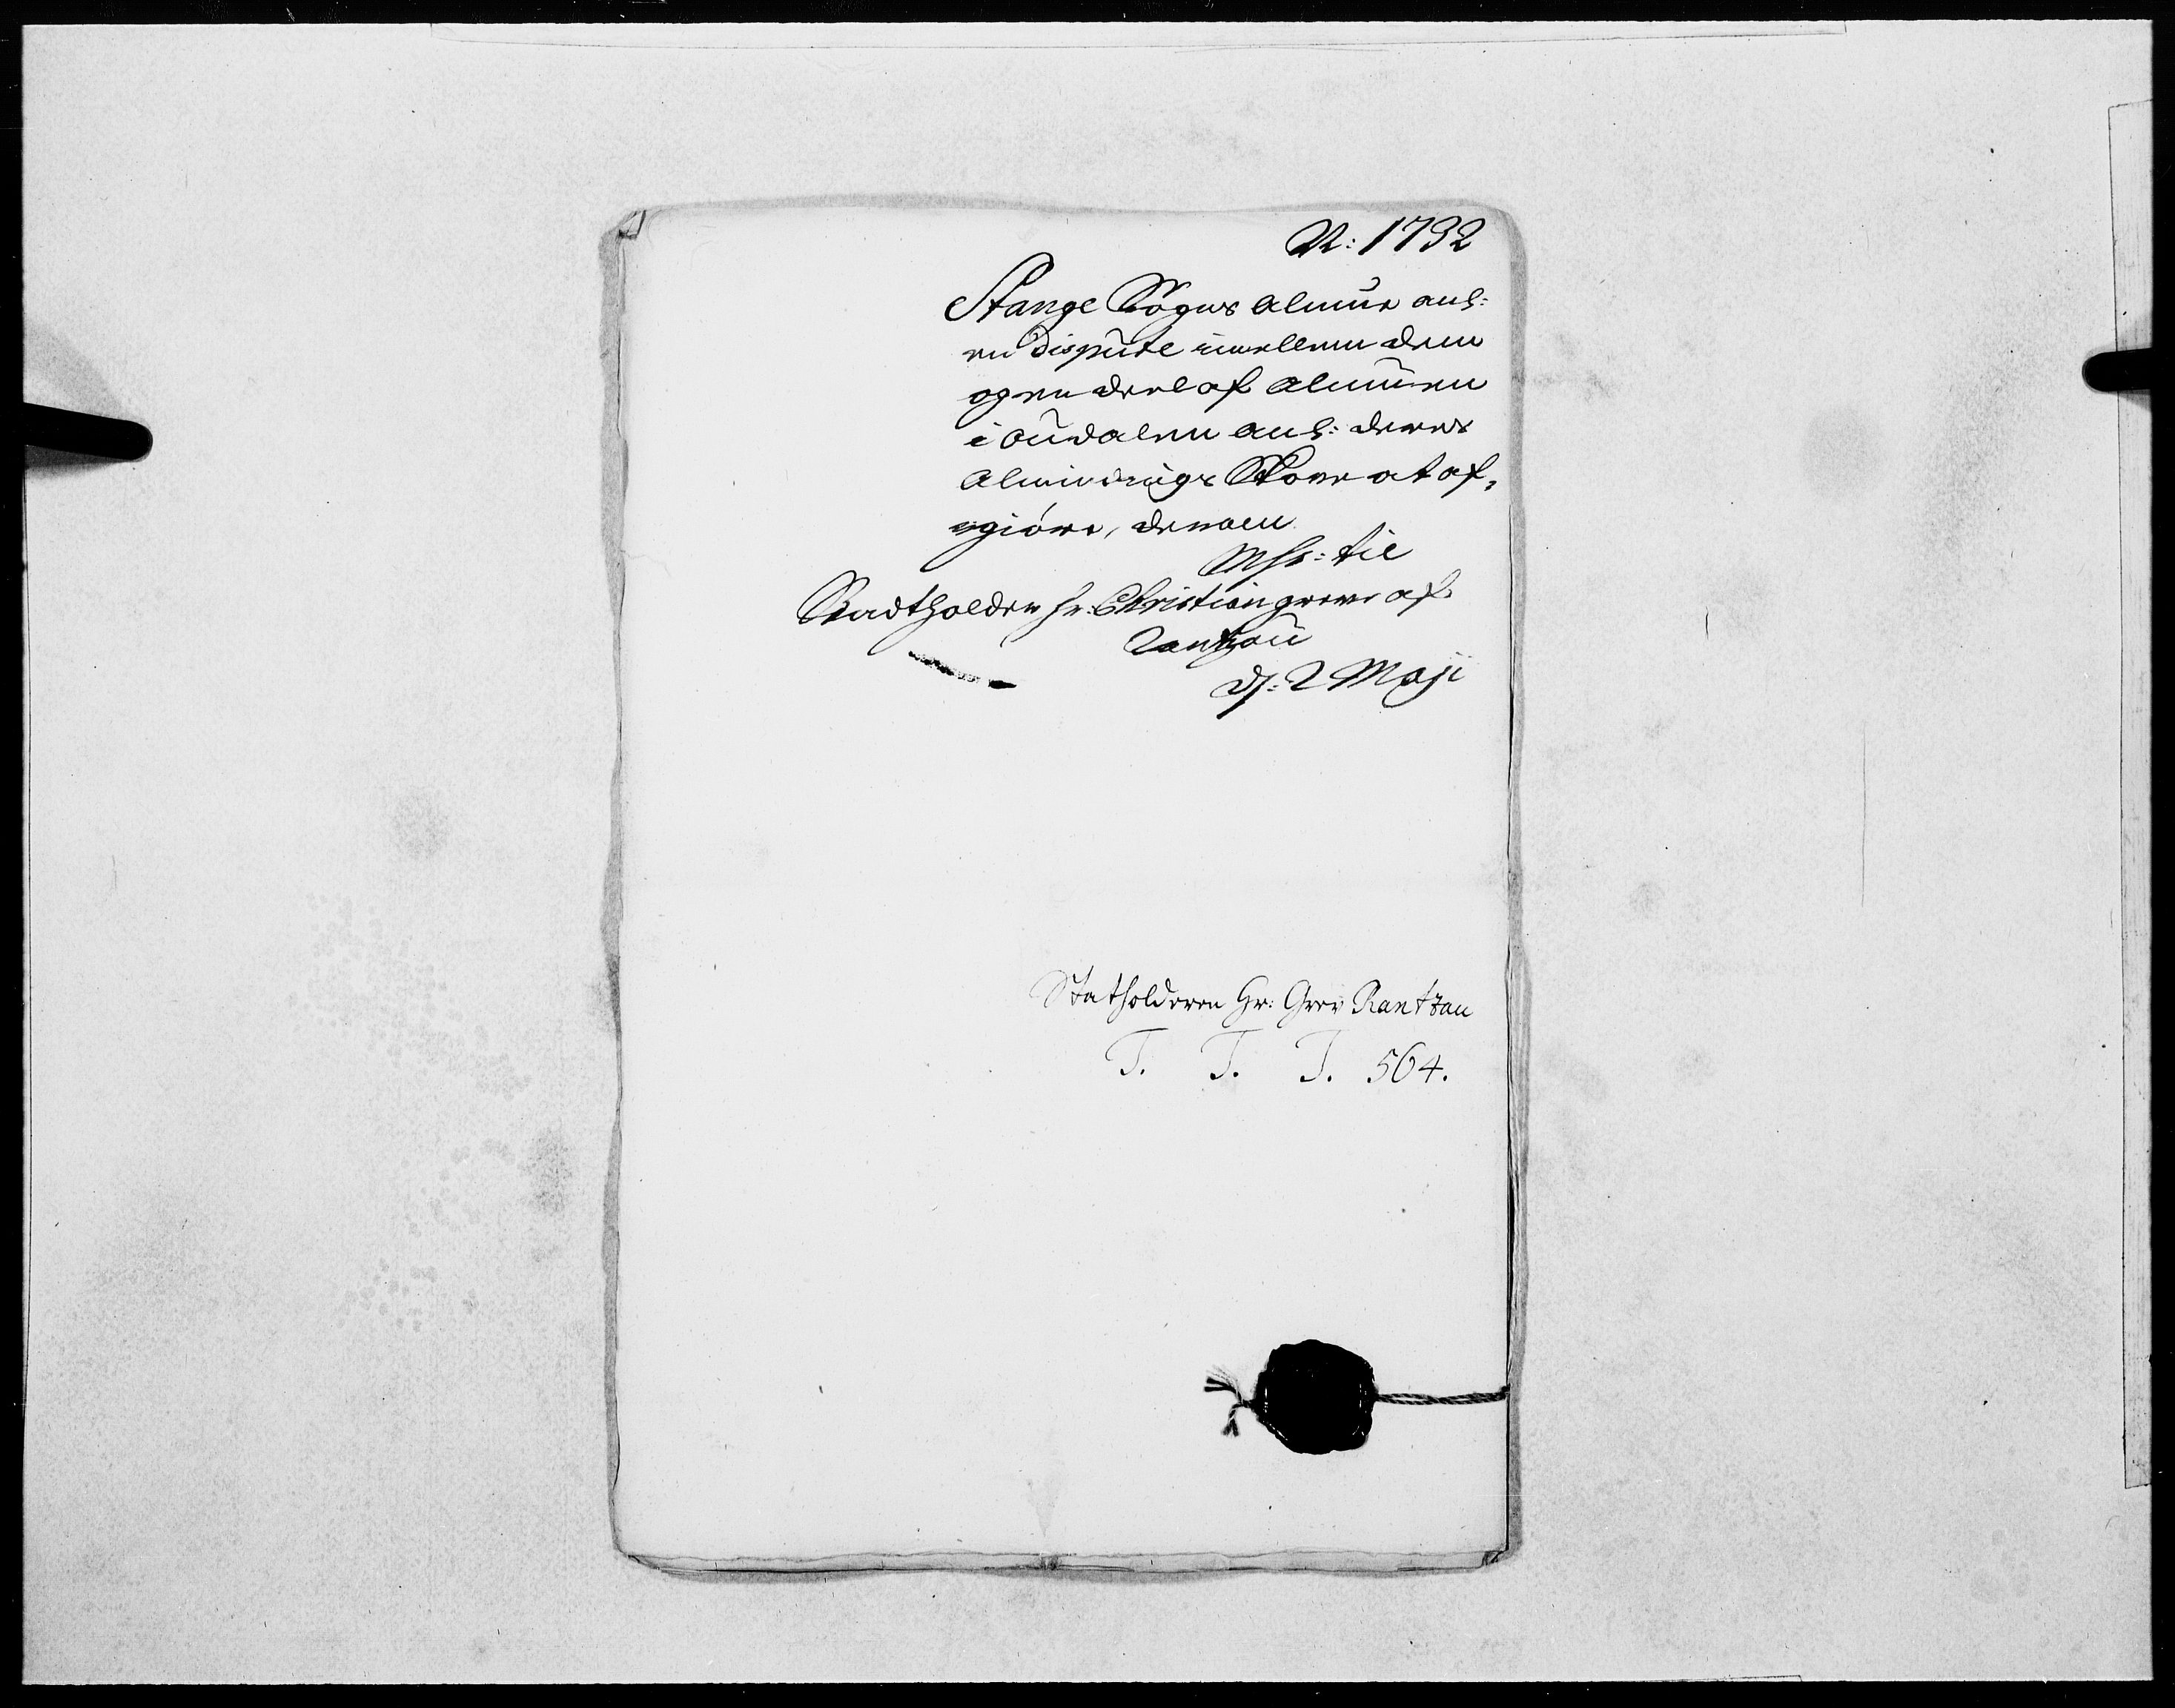 N: 1732
Stange Sogns Almue anl:
en Dispute imellem dem
og en deel af Almuen
i Oudalen anl: deres
Almindings Skove at af,
giöre, derom
Msr: til
Stadtholder hr: Christian greve af
Rantzou
Dj: 2 Maji
Statholderen Hr: Grev Rantzau
T. T. T. 564.